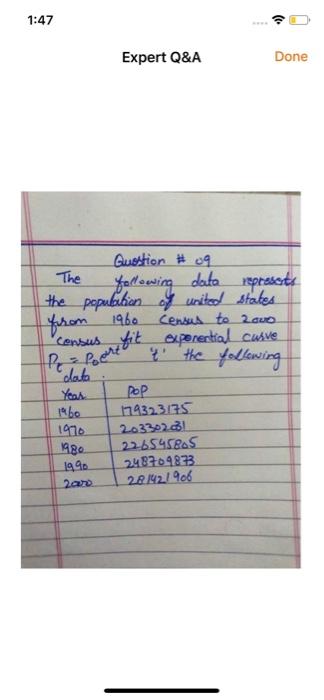 1:47
Expert Q&A
Done
Question # 09
The following data represents
the population of united states
from 1960 Census to 2000
census fit exponential curve
Pt = P0e^rt the following
data.
Year POP
1960 179323175
1970 203302031
1980 226545805
1990 248709873
2000 281421906